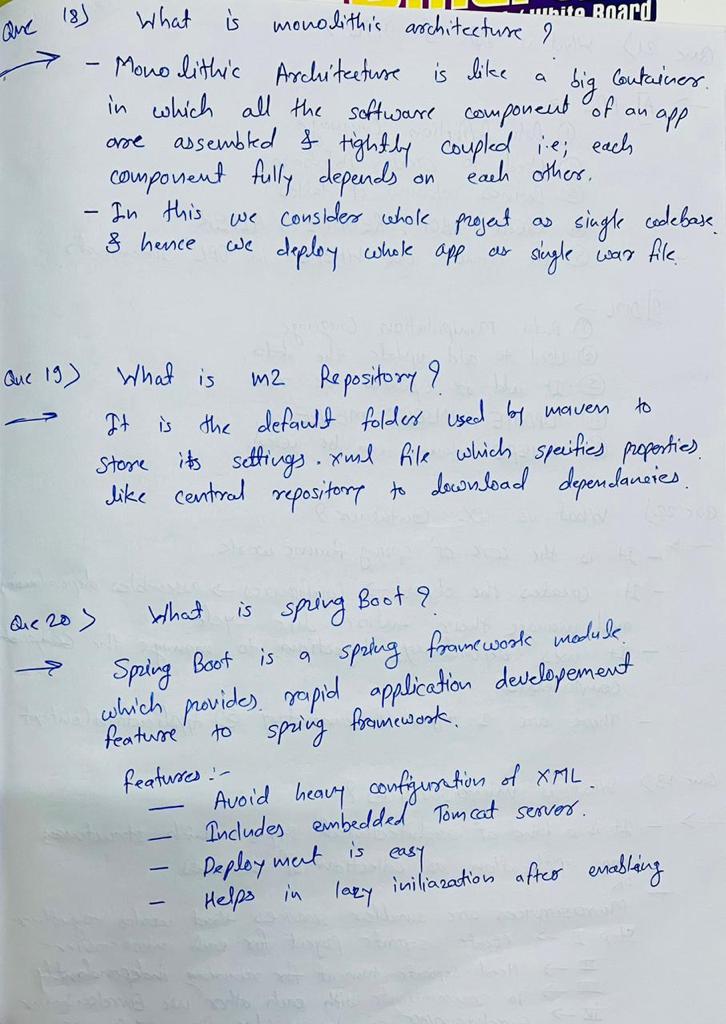 White Board
Que 18) What is monolithic architecture ?
- Monolithic Architecture is like a big Container.
in which all the software component of an app
are assembled & tightly coupled i.e; each
component fully depends on each other.
- In this we consider whole project as single codebase.
& hence we deploy whole app as single war file.
Que 19) What is m2 Repository ?
It is the default folder used by maven to
store its settings.xml file which specifies properties.
like central repository to download dependancies.
Que 20) What is spring Boot ?
Spring Boot is a spring framework module.
which provides. rapid application developement
feature to spring framework.
features :-
— Avoid heavy configuration of XML.
— Includes embedded Tomcat server.
— Deployment is easy
— Helps in lazy iniliazation after enabling